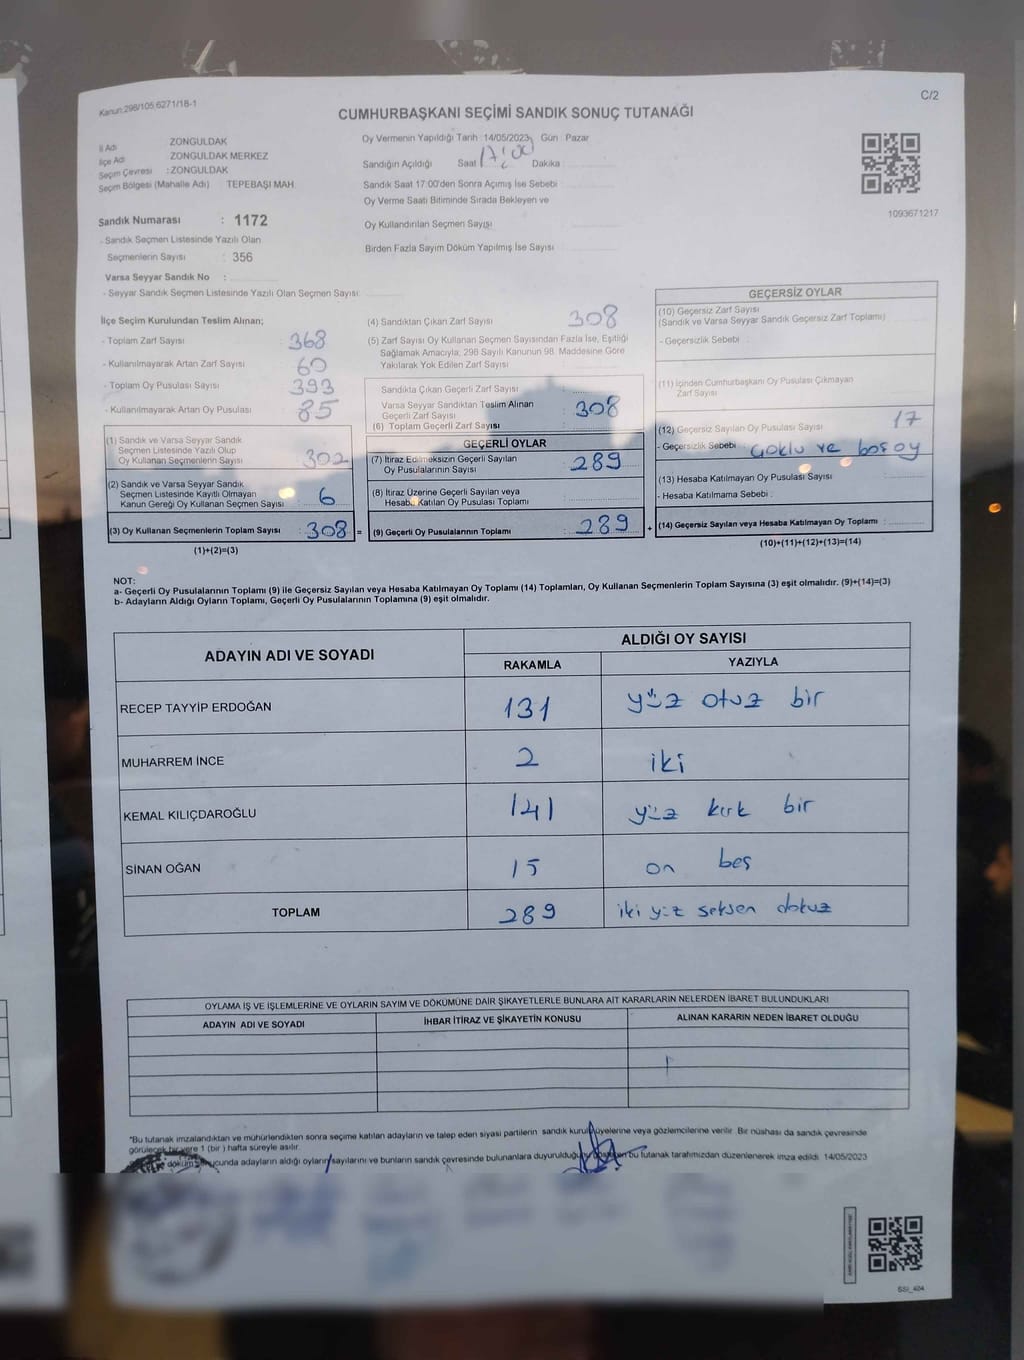 Kanun:298/105,6271/18-1
C/2
CUMHURBAŞKANI SEÇİMİ SANDIK SONUÇ TUTANAĞI
İl Adı ZONGULDAK
İlçe Adı ZONGULDAK MERKEZ
Seçim Çevresi : ZONGULDAK
Seçim Bölgesi (Mahalle Adı) TEPEBAŞI MAH.
Oy Vermenin Yapıldığı Tarih 14/05/2023 Gün : Pazar
Sandığın Açıldığı Saat 17:00 Dakika :
Sandık Saat 17:00'den Sonra Açımış İse Sebebi :
Oy Verme Saati Bitiminde Sırada Bekleyen ve
Oy Kullandırılan Seçmen Sayısı
Birden Fazla Sayım Döküm Yapılmış İse Sayısı
1093671217
Sandık Numarası : 1172
- Sandık Seçmen Listesinde Yazılı Olan
Seçmenlerin Sayısı : 356
Varsa Seyyar Sandık No :
- Seyyar Sandık Seçmen Listesinde Yazılı Olan Seçmen Sayısı:
İlçe Seçim Kurulundan Teslim Alınan;
- Toplam Zarf Sayısı 368
- Kullanılmayarak Artan Zarf Sayısı 60
- Toplam Oy Pusulası Sayısı 393
- Kullanılmayarak Artan Oy Pusulası 85
(1) Sandık ve Varsa Seyyar Sandık
Seçmen Listesinde Yazılı Olup
Oy Kullanan Seçmenlerin Sayısı : 302
(2) Sandık ve Varsa Seyyar Sandık
Seçmen Listesinde Kayıtlı Olmayan
Kanun Gereği Oy Kullanan Seçmen Sayısı : 6
(3) Oy Kullanan Seçmenlerin Toplam Sayısı : 308 =
(1)+(2)=(3)
(4) Sandıktan Çıkan Zarf Sayısı 308
(5) Zarf Sayısı Oy Kullanan Seçmen Sayısından Fazla İse, Eşitliği
Sağlamak Amacıyla; 298 Sayılı Kanunun 98. Maddesine Göre
Yakılarak Yok Edilen Zarf Sayısı
Sandıkta Çıkan Geçerli Zarf Sayısı :
Varsa Seyyar Sandıktan Teslim Alınan
Geçerli Zarf Sayısı : 308
(6) Toplam Geçerli Zarf Sayısı :
GEÇERLİ OYLAR
(7) İtiraz Edilmeksizin Geçerli Sayılan
Oy Pusulalarının Sayısı : 289
(8) İtiraz Üzerine Geçerli Sayılan veya
Hesaba Katılan Oy Pusulası Toplamı :
(9) Geçerli Oy Pusulalarının Toplamı : 289 +
GEÇERSİZ OYLAR
(10) Geçersiz Zarf Sayısı
(Sandık ve Varsa Seyyar Sandık Geçersiz Zarf Toplamı)
- Geçersizlik Sebebi :
(11) İçinden Cumhurbaşkanı Oy Pusulası Çıkmayan
Zarf Sayısı
(12) Geçersiz Sayılan Oy Pusulası Sayısı 17
- Geçersizlik Sebebi : Çoklu ve boş oy
(13) Hesaba Katılmayan Oy Pusulası Sayısı
- Hesaba Katılmama Sebebi :
(14) Geçersiz Sayılan veya Hesaba Katılmayan Oy Toplamı :
(10)+(11)+(12)+(13)=(14)
NOT:
a- Geçerli Oy Pusulalarının Toplamı (9) ile Geçersiz Sayılan veya Hesaba Katılmayan Oy Toplamı (14) Toplamları, Oy Kullanan Seçmenlerin Toplam Sayısına (3) eşit olmalıdır. (9)+(14)=(3)
b- Adayların Aldığı Oyların Toplamı, Geçerli Oy Pusulalarının Toplamına (9) eşit olmalıdır.
ADAYIN ADI VE SOYADI
ALDIĞI OY SAYISI
RAKAMLA YAZIYLA
RECEP TAYYİP ERDOĞAN 131 yüz otuz bir
MUHARREM İNCE 2 iki
KEMAL KILIÇDAROĞLU 141 yüz kırk bir
SİNAN OĞAN 15 on beş
TOPLAM 289 iki yüz seksen dokuz
OYLAMA İŞ VE İŞLEMLERİNE VE OYLARIN SAYIM VE DÖKÜMÜNE DAİR ŞİKAYETLERLE BUNLARA AİT KARARLARIN NELERDEN İBARET BULUNDUKLARI
ADAYIN ADI VE SOYADI İHBAR İTİRAZ VE ŞİKAYETİN KONUSU ALINAN KARARIN NEDEN İBARET OLDUĞU
*Bu tutanak imzalandıktan ve mühürlendikten sonra seçime katılan adayların ve talep eden siyasi partilerin sandık kurulu üyelerine veya gözlemcilerine verilir. Bir nüshası da sandık çevresinde
görülecek bir yere 1 (bir) hafta süreyle asılır.
döküm sonucunda adayların aldığı oyların sayılarını ve bunların sandık çevresinde bulunanlara duyurulduğunu bu tutanak tarafımızdan düzenlenerek imza edildi. 14/05/2023
SSI_404